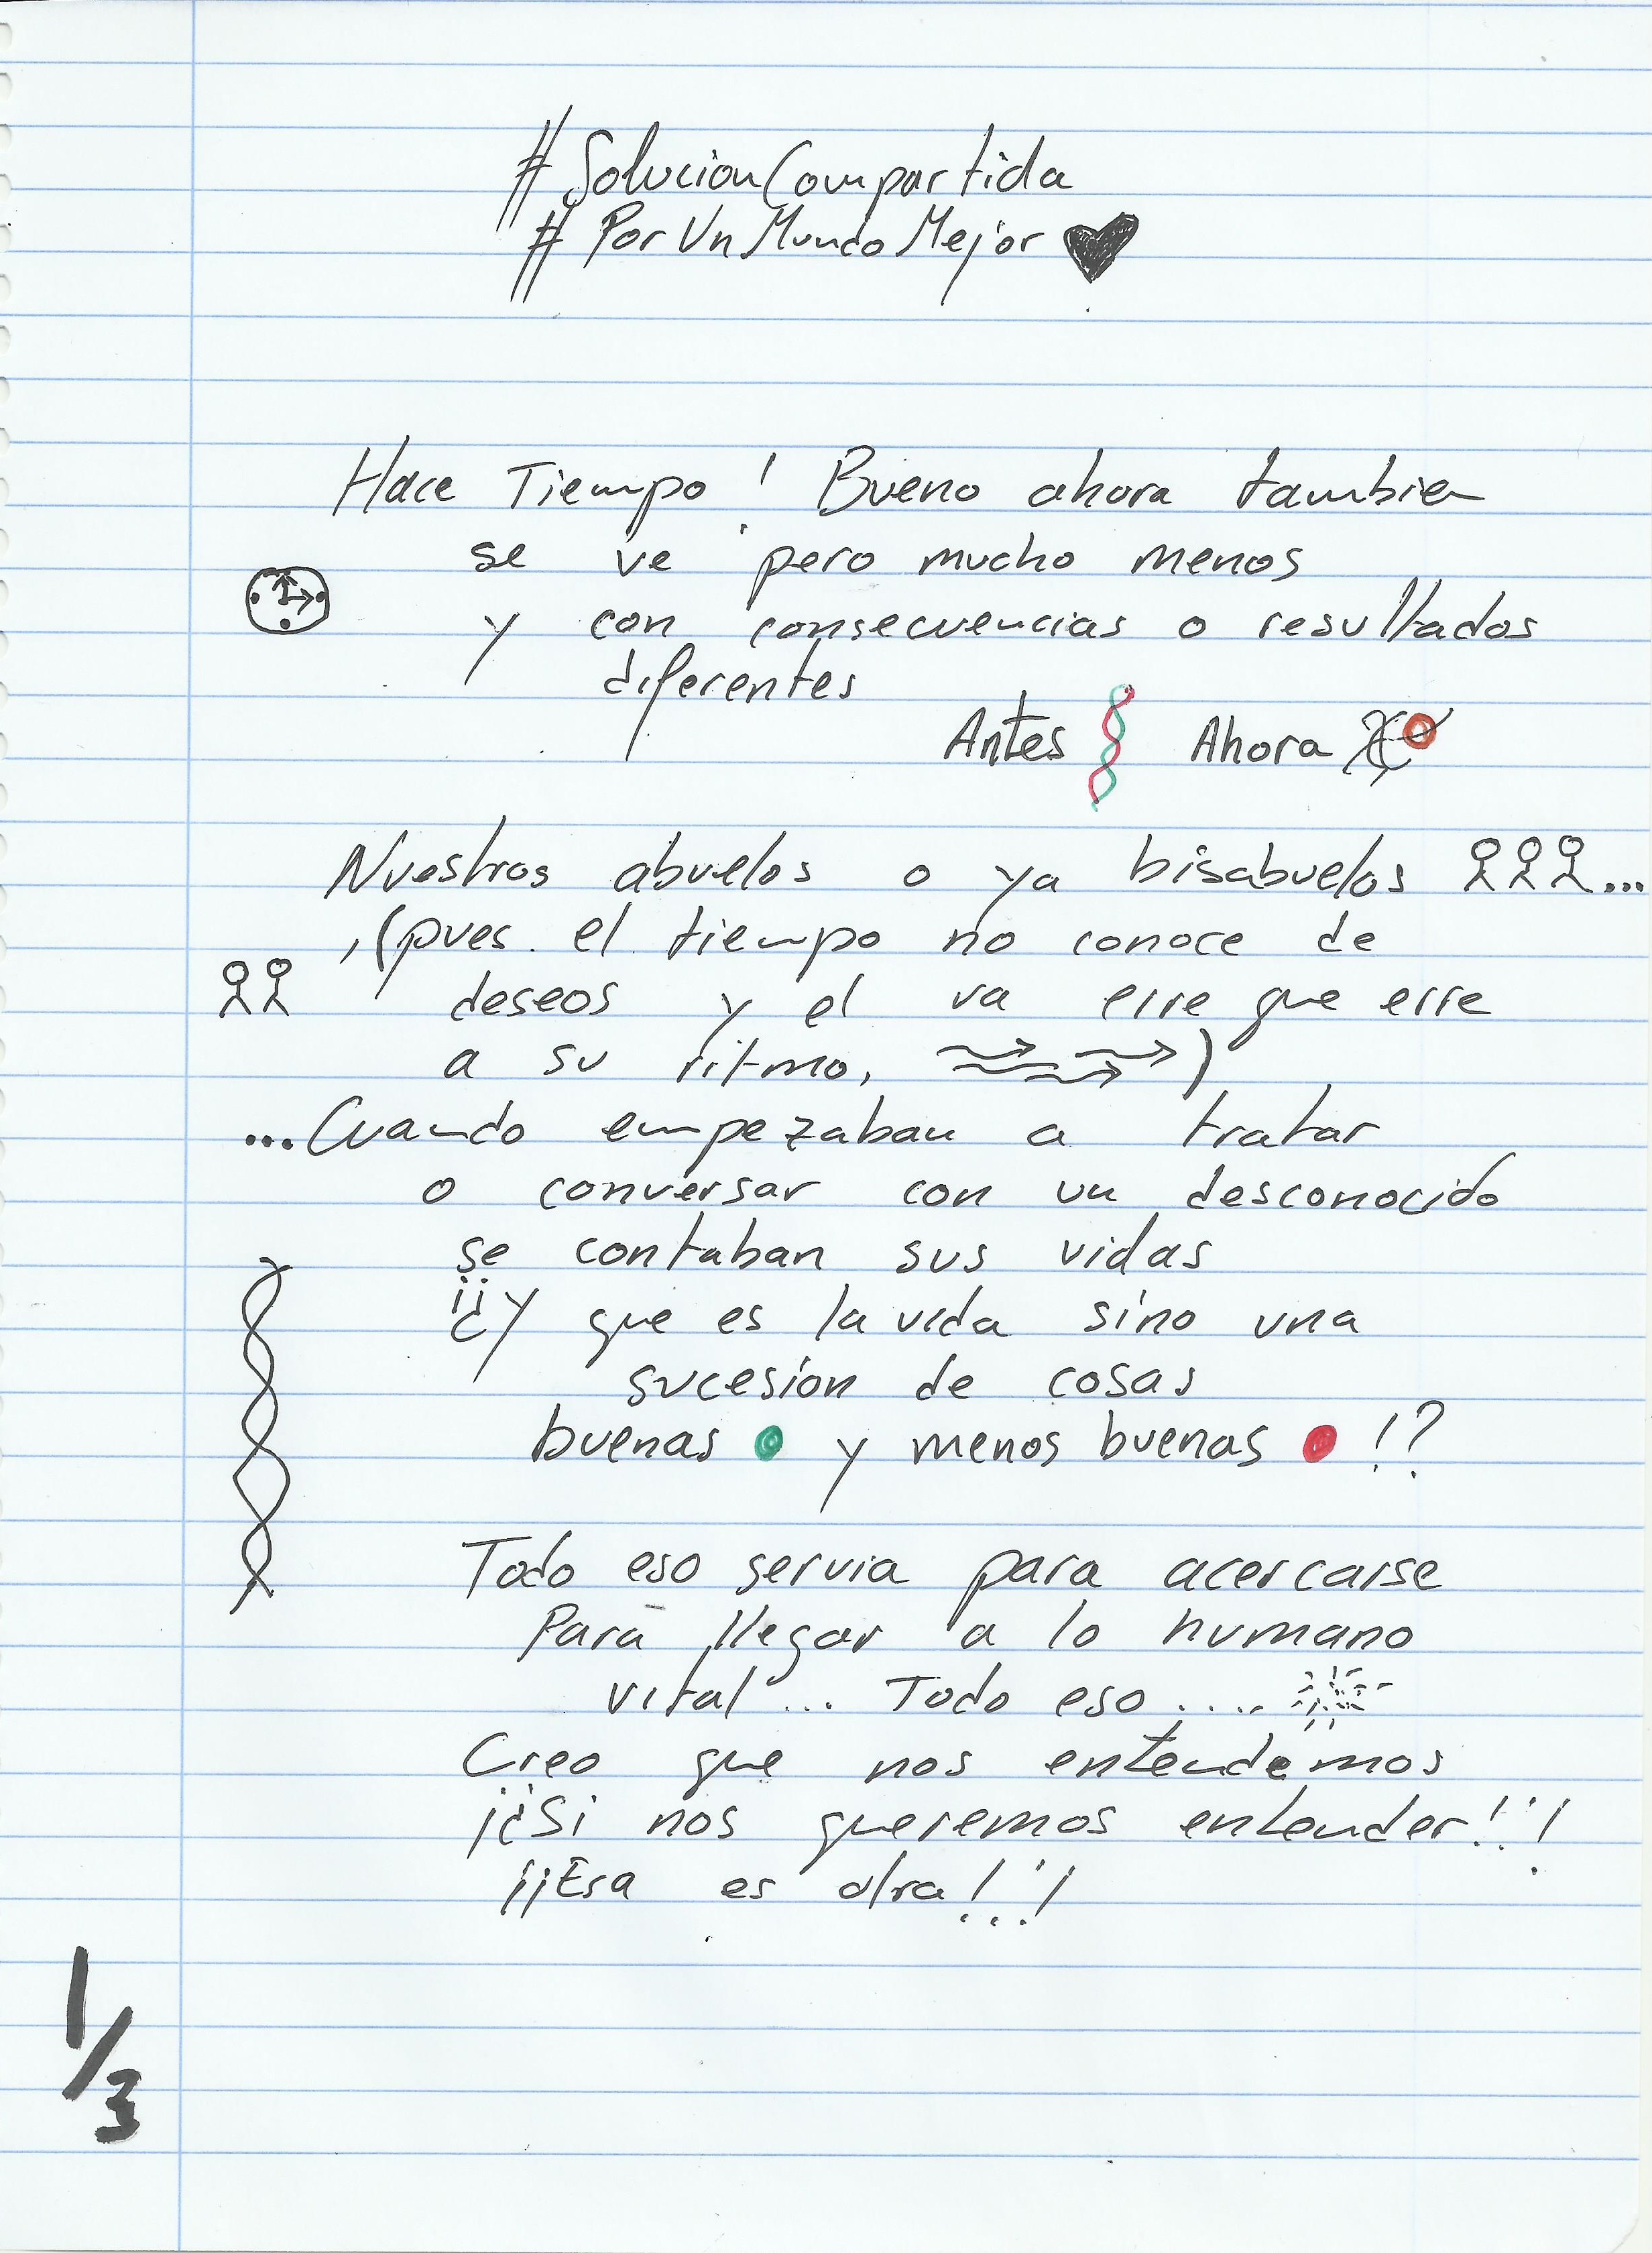 #SolucionCompartida
#PorUnMundoMejor
Hace Tiempo! Bueno ahora tambien
se ve pero mucho menos
y con consecuencias o resultados
diferentes
Antes Ahora
Nuestros abuelos o ya bisabuelos ...
,(pues. el tiempo no conoce de
deseos y el va erre que erre
a su ritmo, )
...Cuando empezaban a tratar
o conversar con un desconocido
se contaban sus vidas
¡¿Y que es la vida sino una
sucesion de cosas
buenas y menos buenas !?
Todo eso servia para acercarse
Para llegar a lo humano
vital ... Todo eso ....
Creo que nos entendemos
¡¿Si nos queremos entender!!!
¡¡Esa es otra!!!
1/3